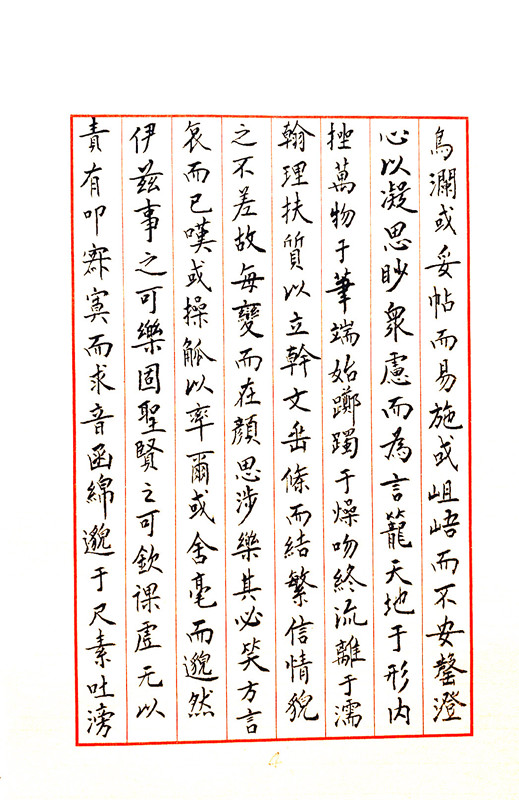 鳥瀾或妥帖而易施或岨峿而不安罄澄
心以凝思眇衆慮而為言籠天地于形內
挫萬物于筆端始躑躅于燥吻終流離于濡
翰理扶質以立幹文垂條而結繁信情貌
之不差故每變而在顏思涉樂其必笑方言
哀而已嘆或操觚以率爾或舍毫而邈然
伊茲事之可樂固聖賢之可欽課虛无以
責有叩寂寞而求音函綿邈于尺素吐滂
4